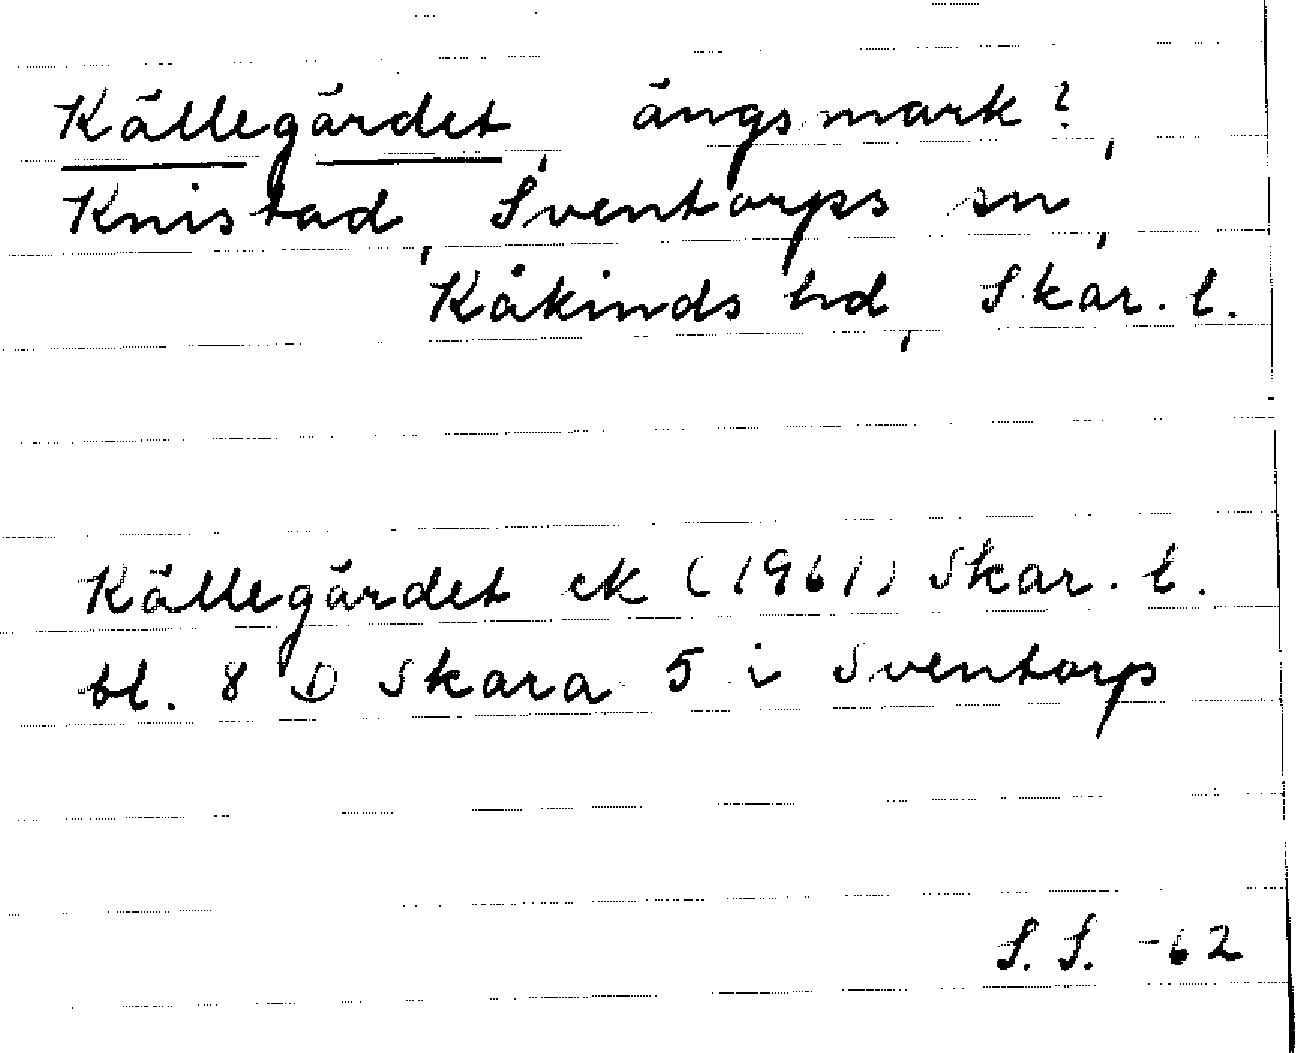 Källegärdet, ängsmark?,
Knistad, Sventorps sn,
Kåkinds hd, Skar. l.
Källegärdet ek (1961) Skar. l.
bl. 8 D Skara 5 i Sventorp
S. S. -62